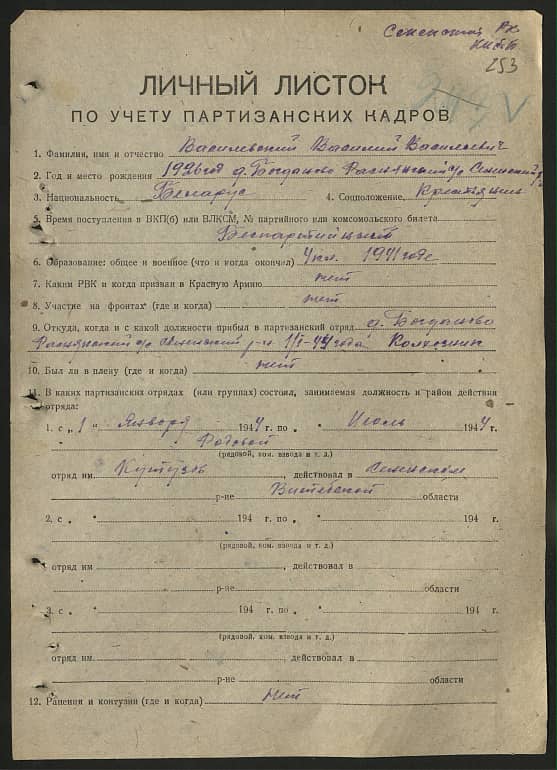 Сененский РК
КП(б)Б
253
ЛИЧНЫЙ ЛИСТОК
ПО УЧЕТУ ПАРТИЗАНСКИХ КАДРОВ
1. Фамилия, имя и отчество Василевский Василий Васильевич
2. Год и место рождения 1926 год д. Богданово с/с Сененский
3. Национальность Беларус 4. Соцположение, Крестьянин
5. Время поступления в ВКП(б) или ВЛКСМ, № партийного или комсомольского билета
Беспартийный
6. Образование: общее и военное (что и когда окончил) 4 кл. 1941 годе
7. Каким РВК и когда призван в Красную Армию нет
8. Участие на фронтах (где и когда) нет
9. Откуда, когда и с какой должности прибыл в партизанский отряд д. Богданово
с/с Сененский р-н 1/I-44 года Колхозник
10. Был ли в плену (где и когда) нет
11. В каких партизанских отрядах (или группах) состоял, занимаемая должность и район действия
отряда:
1. с „1" Января 1944 г. по „ Июль 1944 г.
Родовой
(рядовой, ком. взвода и т. д.)
отряд им. Кутузов, действовал в Сененском
р-не Витебской области
2. с „ " 194 г. по „ " 194 г.
(рядовой, ком. взвода и т. д.)
отряд им , действовал в
р-не области
3. с „ " 194 г. по „ " 194 г.
(рядовой, ком. взвода и т. д.)
отряд им. , действовал в
р-не области
12. Ранения и контузии (где и когда) нет